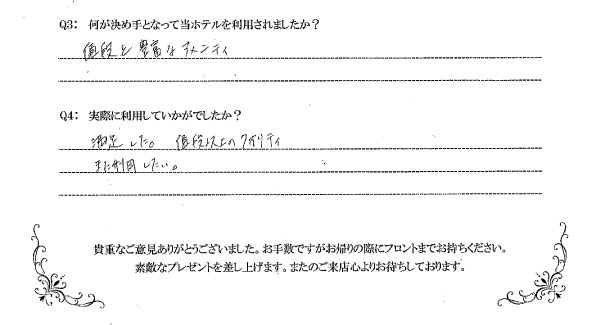 Q3: 何が決め手となって当ホテルを利用されましたか？
値段と豊富なアメニティ
Q4: 実際に利用していかがでしたか？
満足した。 値段以上のクオリティ
また利用したい。
貴重なご意見ありがとうございました。お手数ですがお帰りの際にフロントまでお持ちください。
素敵なプレゼントを差し上げます。またのご来店心よりお待ちしております。